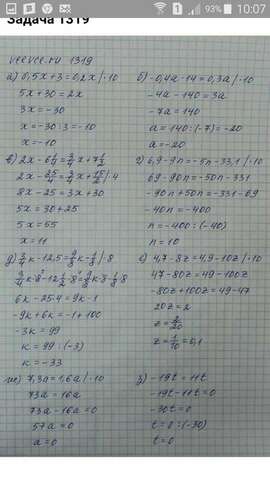 93% 10:07
Задача 1319
veevee.ru 1319
а) 0,5x+3=0,2x |·10
5x+30=2x
3x=-30
x=-30:3=-10
x=-10
б) -0,4a-14=0,3a |·10
-4a-140=3a
-7a=140
a=140:(-7)=-20
a=-20
8x-25=3x+30
5x=30+25
5x=55
x=11
г) 6,9-9n=-5n-33,1 |·10
69-90n=-50n-331
-90n+50n=-331-69
-40n=-400
n=-400:(-40)
n=10
6k-25·4=9k-1
-9k+6k=-1+100
-3k=99
k=99:(-3)
k=-33
е) 4,7-8z=4,9-10z |·10
47-80z=49-100z
-80z+100z=49-47
20z=2
z=2/20
z=1/10=0,1
ж) 7,3a=1,6a |·10
73a=16a
73a-16a=0
57a=0
a=0
з) -19t=11t
-19t-11t=0
-30t=0
t=0:(-30)
t=0